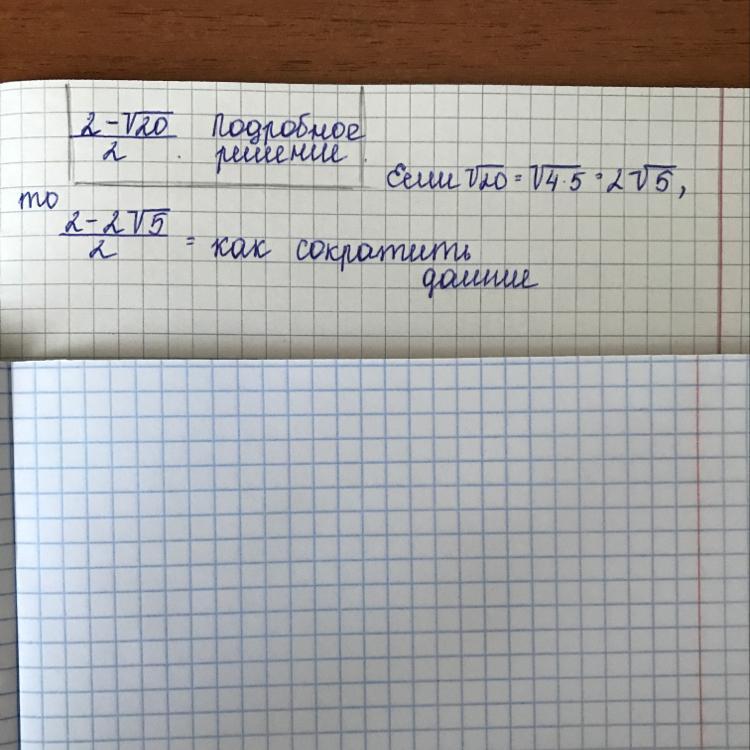 2-√20 / 2 Подробное
решение
Если √20 = √4·5 = 2√5,
то
2-2√5 / 2 = как сократить
дании